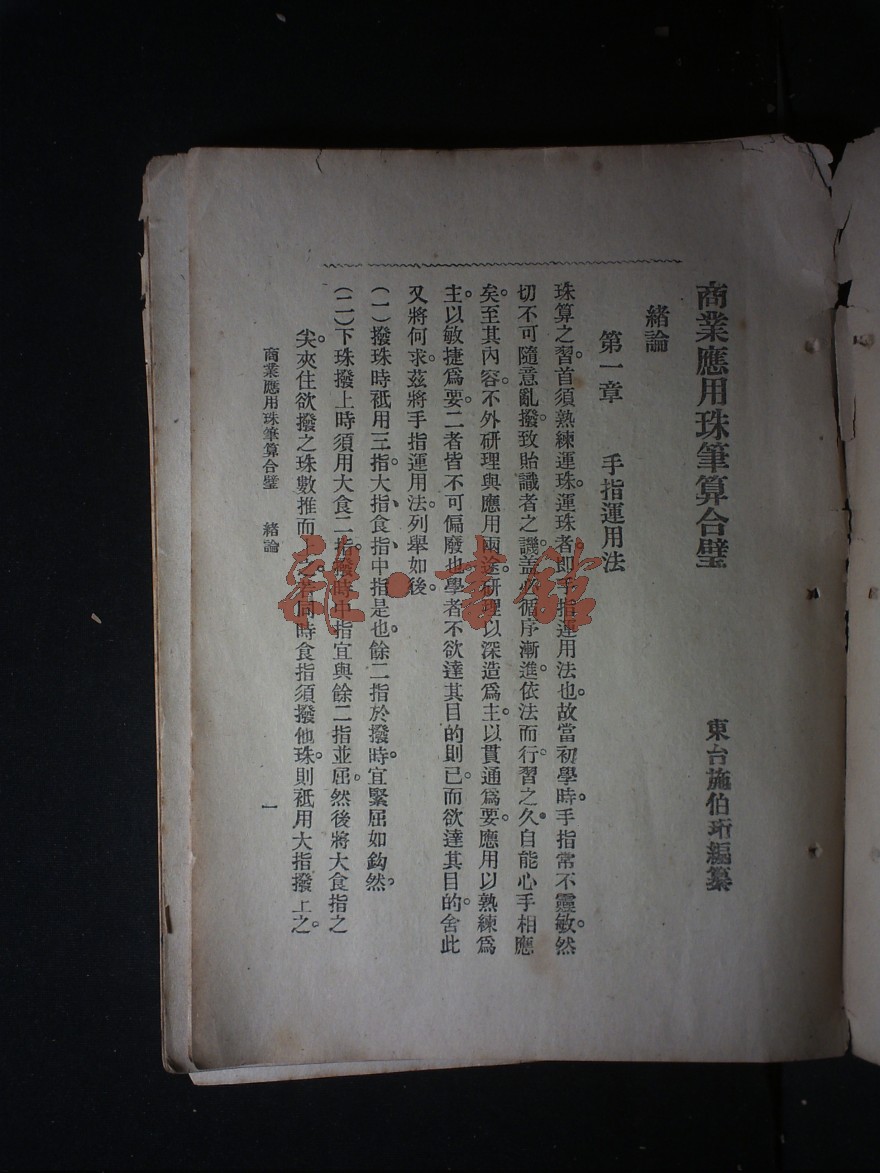 商業應用珠筆算合璧
東台施伯珩編纂
緒論
第一章 手指運用法
珠算之習。首須熟練運珠。運珠者即手指運用法也。故當初學時。手指常不靈敏。然
切不可隨意亂撥。致貽識者之譏。盖必循序漸進。依法而行。習之久。自能心手相應
矣。至其內容。不外研理與應用兩途。研理以深造爲主。以貫通爲要。應用以熟練爲
主。以敏捷爲要。二者皆不可偏廢也。學者不欲達其目的則已。而欲達其目的。舍此
又將何求。茲將手指運用法。列舉如後。
(一)撥珠時祗用三指。大指、食指、中指是也。餘二指於撥時。宜緊屈如鈎然。
(二)下珠撥上時。須用大食二指。撥時中指宜與餘二指並屈。然後將大食指之
尖。夾住欲撥之珠數。推而上之。若同時食指須撥他珠。則祗用大指撥上之。
商業應用珠筆算合璧 緒論
一
雜·書館